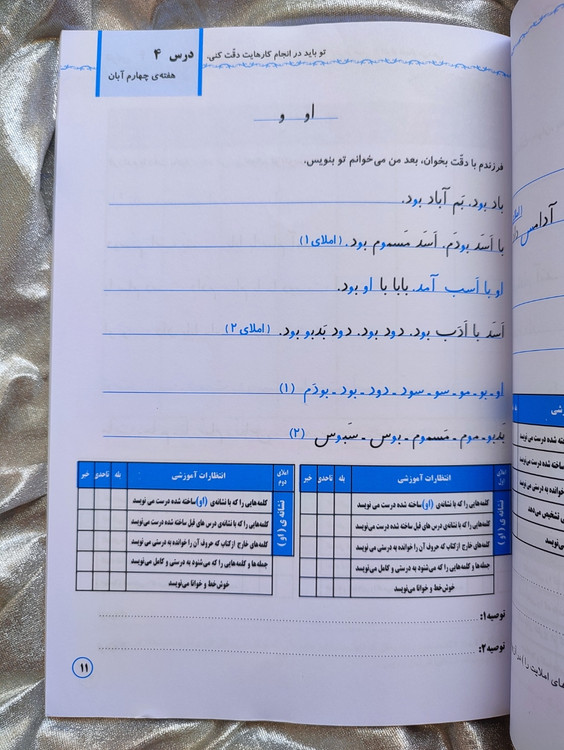 درس ۴
هفته‌ی چهارم آبان
تو باید در انجام کارهایت دقّت کنی.
او و
فرزندم با دقّت بخوان، بعد من می‌خوانم تو بنویس.
باد بود. بَم آباد بود.
با اَسَد بودَم. اَسَد مَسموم بود. (املای ۱)
او با اَسب آمد. بابا با او بود.
اَسَد با اَدَب بود. دود بود. دود بَدبو بود. (املای ۲)
او - بو - مو - سو - سود - دود - بود - بودَم (۱)
بَدبو - موم - مَسموم - بوس - سَبوس (۲)
املای اول انتظارات آموزشی بله تاحدی خیر
نشانه ی (او)
کلمه‌هایی را که با نشانه‌ی (او) ساخته شده درست می نویسد
کلمه‌هایی را که با نشانه‌ی درس های قبل ساخته شده درست می‌نویسد
کلمه‌های خارج از کتاب که حروف آن را خوانده به درستی می نویسد
جمله‌ها و کلمه‌هایی را که می‌شنود به درستی و کامل می‌نویسد
خوش‌خط و خوانا می‌نویسد
املای دوم انتظارات آموزشی بله تاحدی خیر
نشانه ی (او)
کلمه‌هایی را که با نشانه‌ی (او) ساخته شده درست می نویسد
کلمه‌هایی را که با نشانه‌ی درس های قبل ساخته شده درست می‌نویسد
کلمه‌های خارج از کتاب که حروف آن را خوانده به درستی می نویسد
جمله‌ها و کلمه‌هایی را که می‌شنود به درستی و کامل می‌نویسد
خوش‌خط و خوانا می‌نویسد
توصیه۱:
توصیه۲:
۱۱